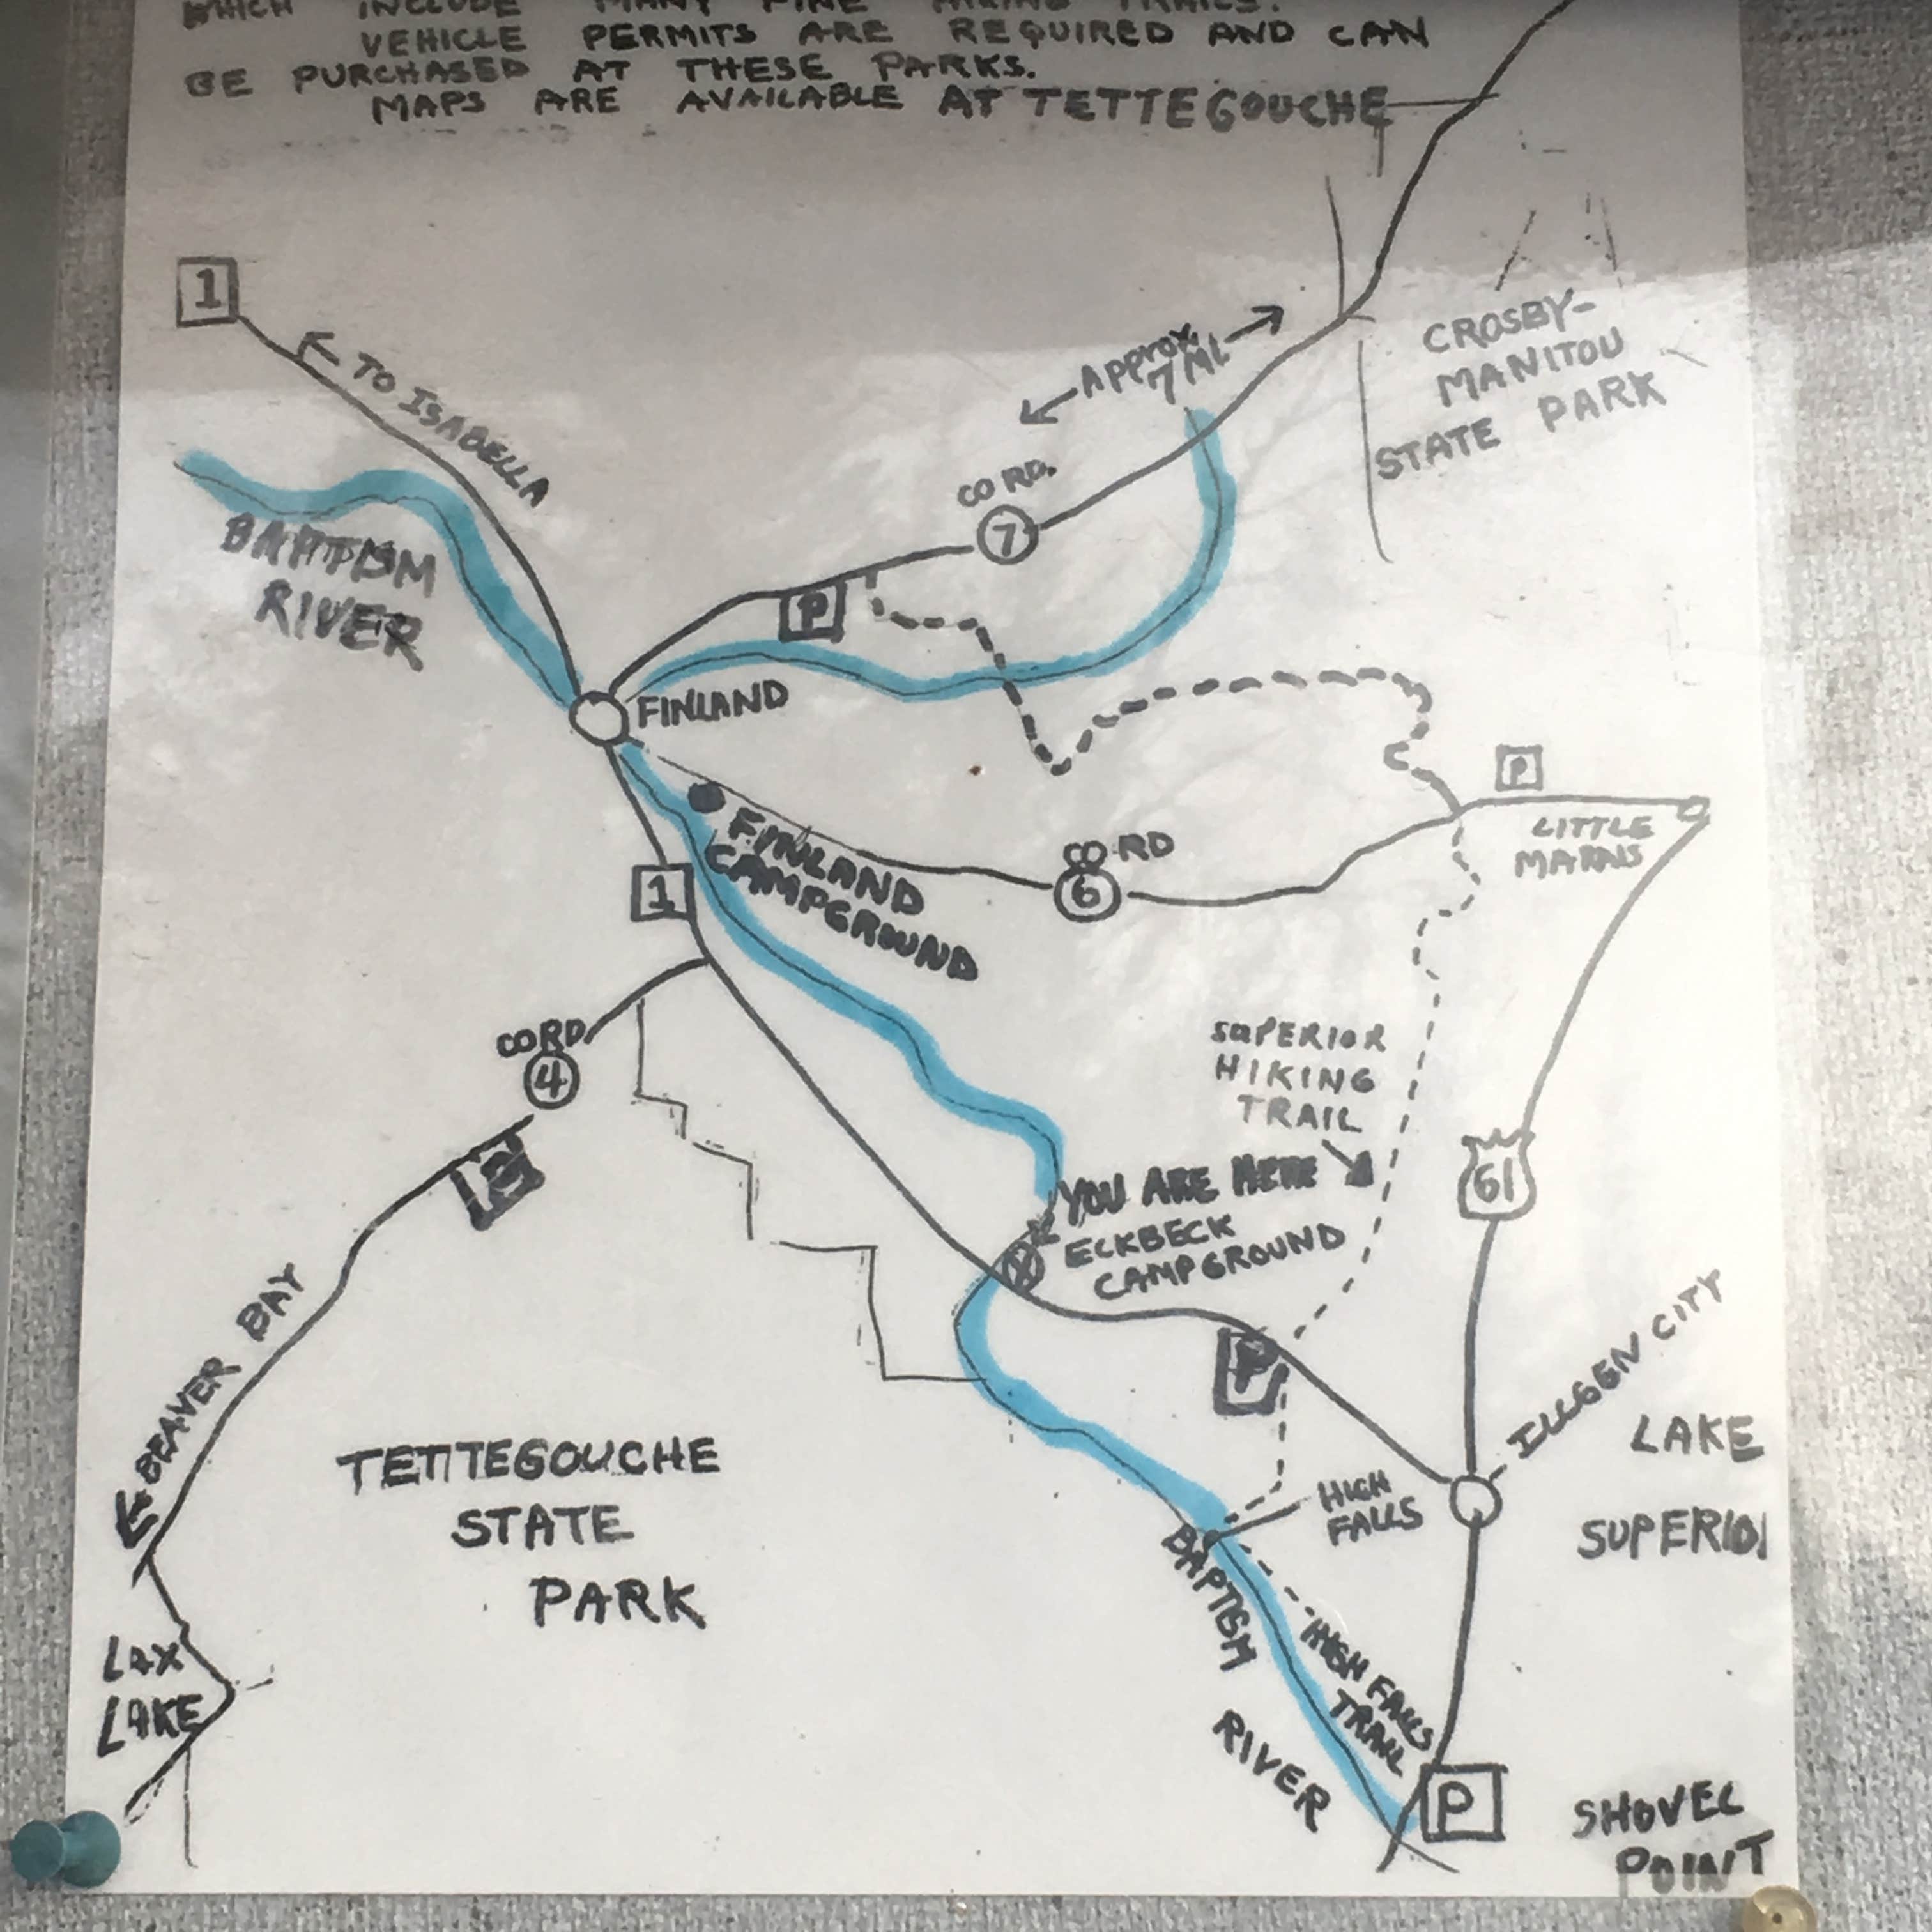 WHICH INCLUDE MANY FINE HIKING TRAILS.
VEHICLE PERMITS ARE REQUIRED AND CAN
BE PURCHASED AT THESE PARKS.
MAPS ARE AVAILABLE AT TETTEGOUCHE
1
← TO ISABELLA
← APPROX. →
7 MI.
CROSBY-
MANITOU
STATE PARK
BAPTISM
RIVER
CO RD.
7
P
FINLAND
P
LITTLE
MARAIS
FINLAND
CAMPGROUND
CO RD
6
1
CO RD.
4
P
SUPERIOR
HIKING
TRAIL
YOU ARE HERE
ECKBECK
CAMPGROUND
61
← BEAVER BAY
P
ILLGEN CITY
LAKE
SUPERIOR
TETTEGOUCHE
STATE
PARK
HIGH
FALLS
BAPTISM
RIVER
HIGH FALLS
TRAIL
LAX
LAKE
P
SHOVEL
POINT